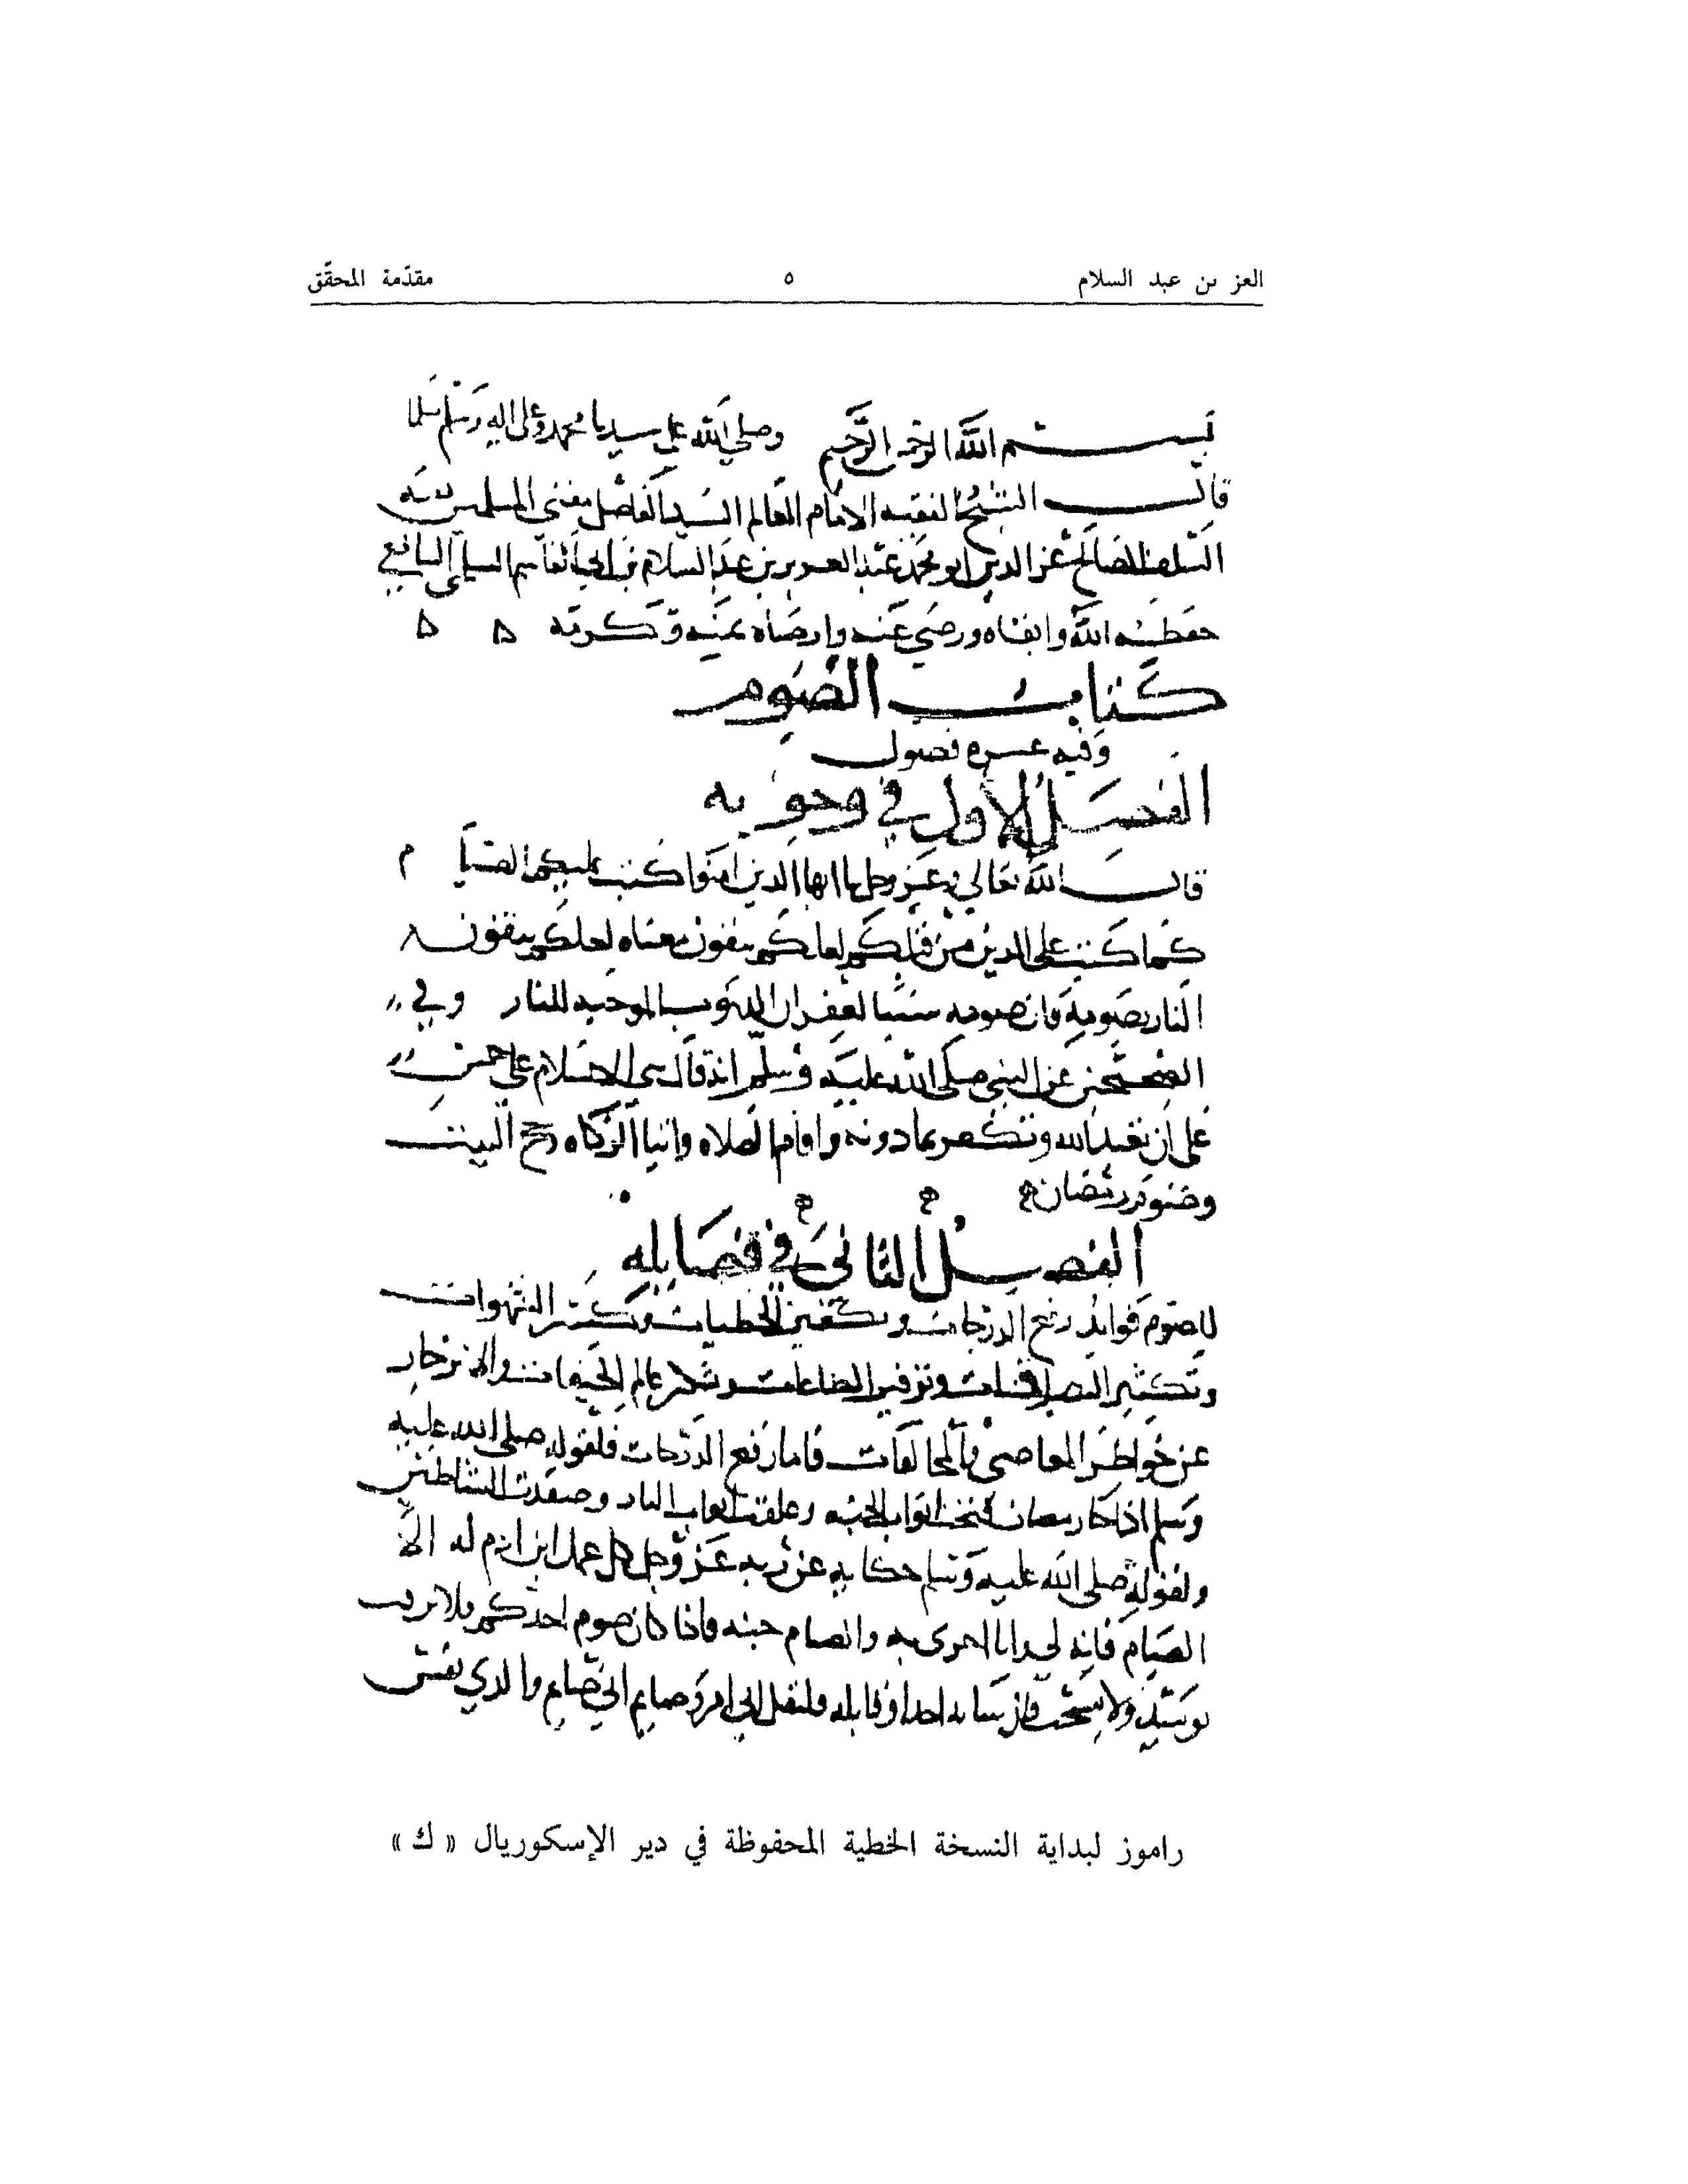 العز بن عبد السلام ٥ مقدّمة المحقّق
بسم الله الرحمن الرحيم وصلى الله على سيدنا محمد وعلى اله وسلم تسليما
قال الشيخ الفقيه الامام العالم السيد الفاضل مفتي المسلمين بقية
السلف الصالح عز الدين ابو محمد عبد العزيز بن عبد السلام بن ابي القاسم السلمي الشافعي
حفظه الله وابقاه ورضي عنه وارضاه بمنه وكرمه
كتاب الصوم
وفيه عشره فصول
الفصل الاول في وجوبه
قال الله تعالى عز وجل يا ايها الذين امنوا كتب عليكم الصيام
كما كتب على الذين من قبلكم لعلكم تتقون معناه لعلكم تتقون
النار بصومه فان صومه سببا لغفران الذنوب الموجبه للنار وفي
الصحيحين عن النبي صلى الله عليه وسلم انه قال بني الاسلام على خمس
على ان تعبد الله وتكفر بما دونه واقام الصلاه وايتا الزكاه وحج البيت
وصوم رمضان
الفصل الثاني في فضايله
للصوم فوايد رفع الدرجات وتكفير الخطيات وكسر الشهوات
وتكثير الصدقات وتوفير الطاعات وشكر عالم الخفيات والانزجار
عن خواطر المعاصي والمخالفات فاما رفع الدرجات فلقوله صلى الله عليه
وسلم اذا جا رمضان فتحت ابواب الجنه وغلقت ابواب النار وصفدت الشياطين
ولقوله صلى الله عليه وسلم حكايه عن ربه عز وجل كل عمل ابن ادم له الا
الصيام فانه لي وانا اجزي به والصيام جنه فاذا كان صوم احدكم فلا يرفث
يوميذ ولا يسخب فان سابه احد او قاتله فليقل اني امرؤ صايم اني صايم والذي نفس
راموز لبداية النسخة الخطية المحفوظة في دير الإسكوريال « ك »